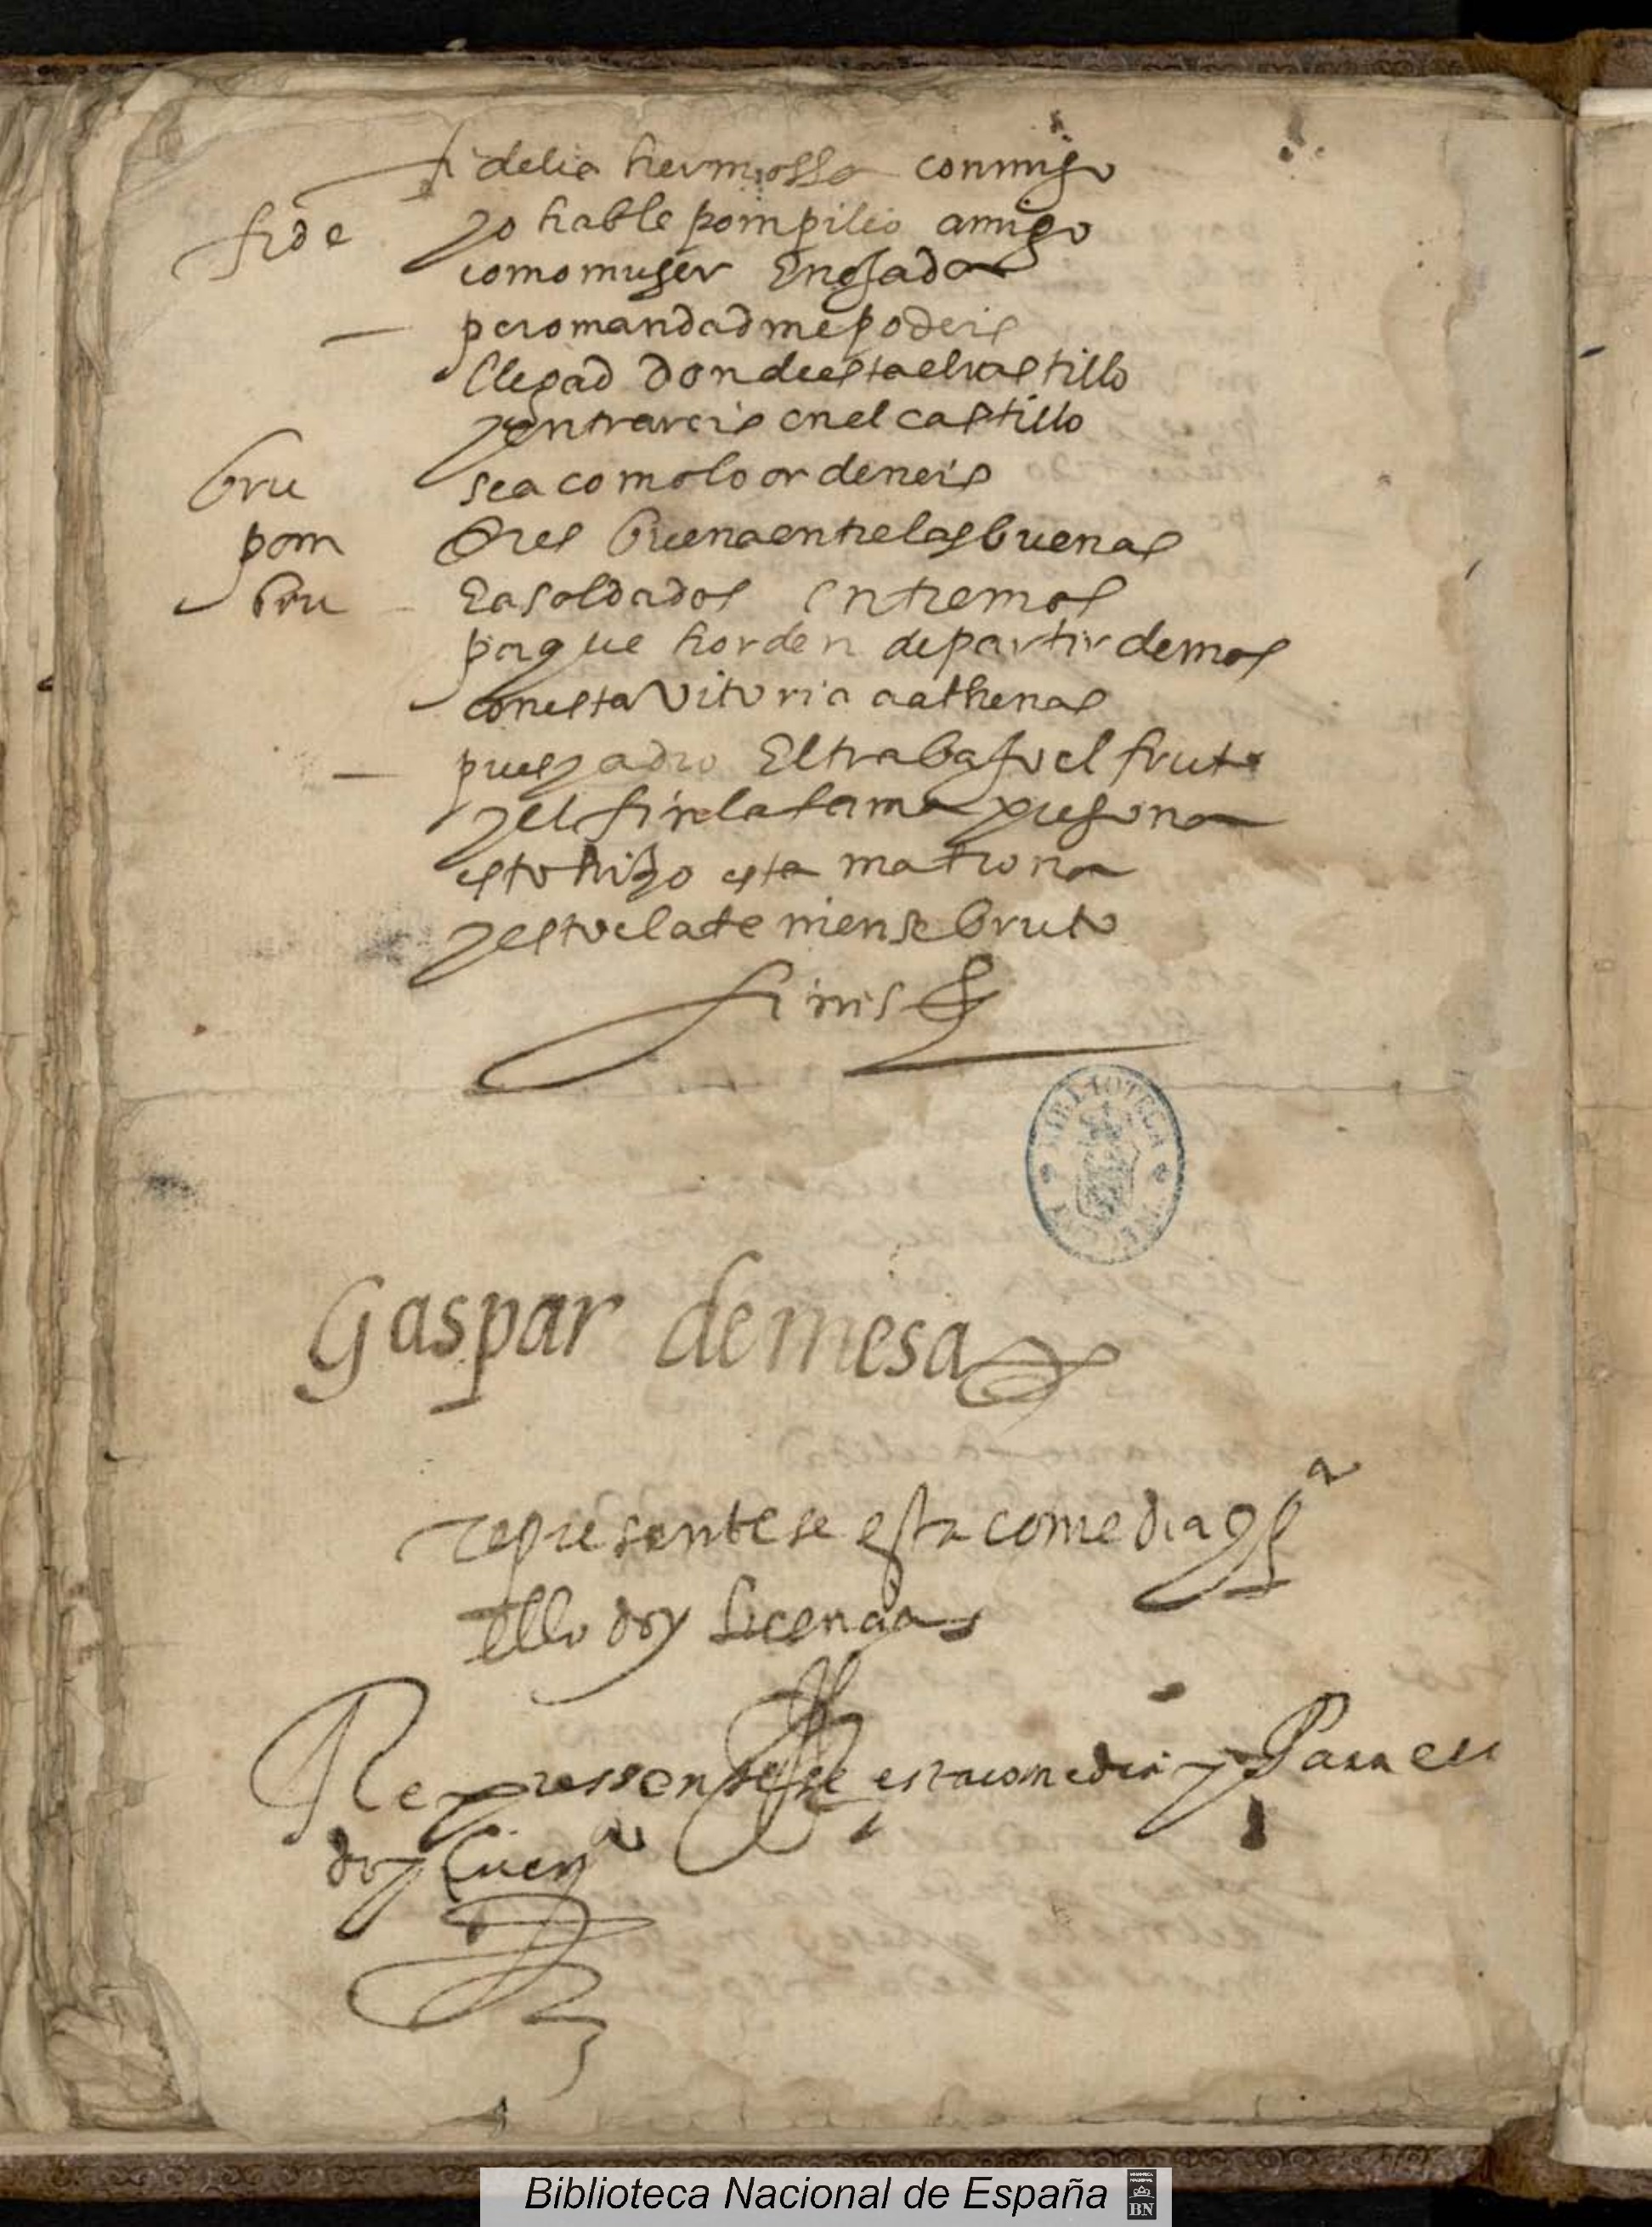 fidelia hermossa conmigo
fide yo hable pompilio amigo
como muger Enojada
pero mandad me podeis
llegad donde esta el rastillo
y entrareis en el castillo
bru sea como lo ordeneis
pom Eres buena entre las buenas
bru Ea soldados entremos
porque horden de partir demos
con esta vitoria a athenas
pues ya dio El trabajo el fruto
y el fin la fama pregona
esto hizo esta matrona
y esto el ateniense bruto
finis
BIBLIOTECA NACIONAL
Gaspar de mesa
representese esta comedia q pa
ello doy licencia
Repressentesse esta comedia y Para ello
doy licena
Biblioteca Nacional de España
BN